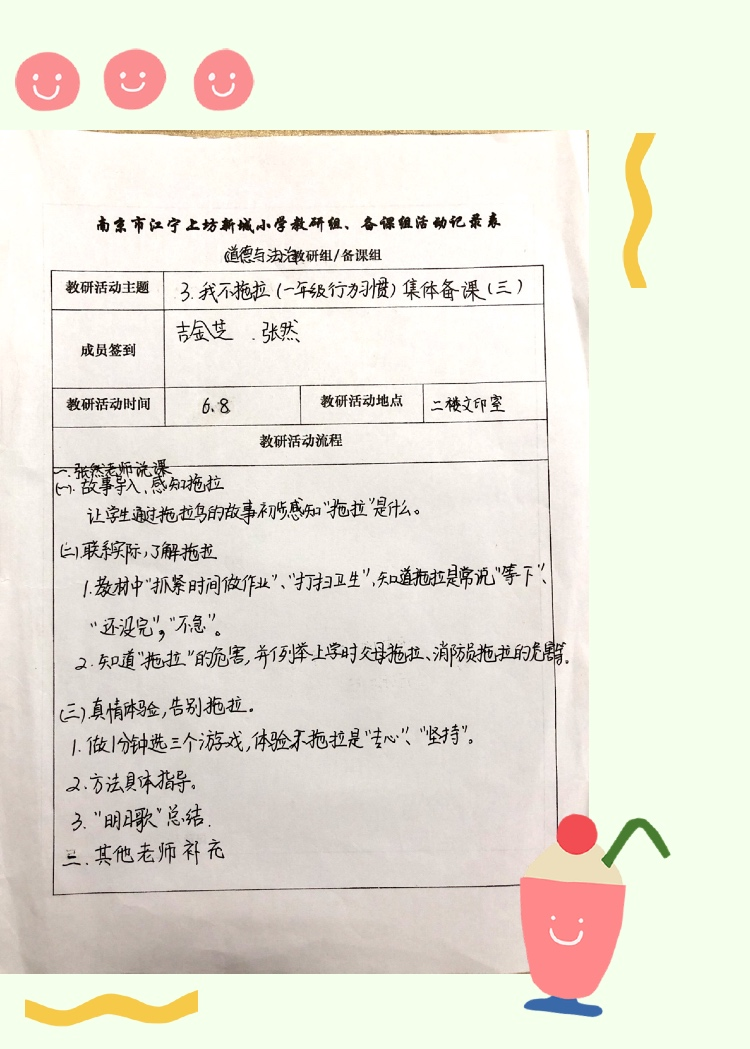 南京市江宁上坊新城小学教研组、备课组活动记录表
道德与法治教研组/备课组
教研活动主题 3.我不拖拉(一年级行为习惯)集体备课(三)
成员签到 吉金芝 张然
教研活动时间 6.8 教研活动地点 二楼文印室
教研活动流程
一.张然老师说课
(一).故事导入,感知拖拉
让学生通过拖拉鸟的故事初步感知"拖拉"是什么。
(二)联系实际,了解拖拉
1.教材中"抓紧时间做作业"、"打扫卫生",知道拖拉是常说"等下"、
"还没完","不急"。
2.知道"拖拉"的危害,并列举上学时父母拖拉、消防员拖拉的危害等。
(三)真情体验,告别拖拉。
1.做1分钟选三个游戏,体验不拖拉是"专心"、"坚持"。
2.方法具体指导。
3."明日歌"总结.
三.其他老师补充